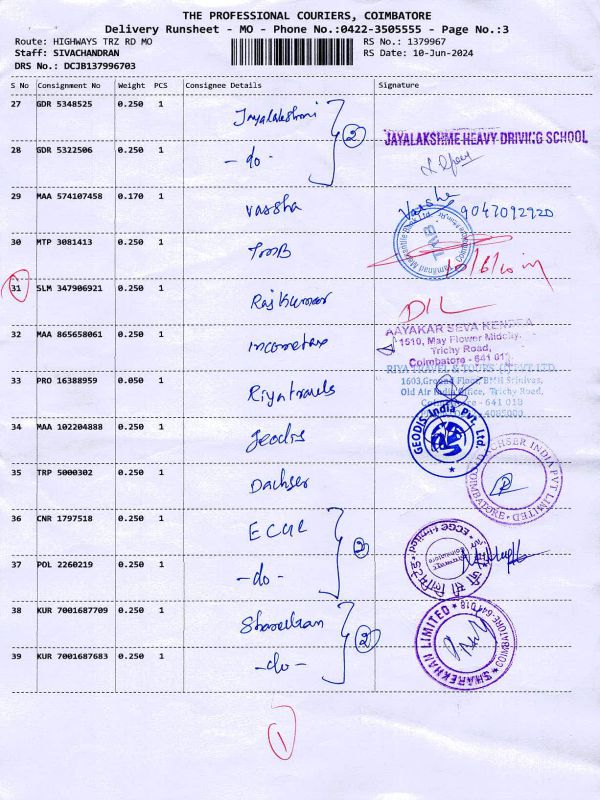 THE PROFESSIONAL COURIERS, COIMBATORE
Delivery Runsheet - MO - Phone No.:0422-3505555 - Page No.:3
Route: HIGHWAYS TRZ RD MO RS No.: 1379967
Staff: SIVACHANDRAN RS Date: 10-Jun-2024
DRS No.: DCJB137996703
S No Consignment No Weight PCS Consignee Details Signature
27 GDR 5348525 0.250 1 Jayalakshmi
2
JAYALAKSHME HEAVY DRIVING SCHOOL
28 GDR 5322506 0.250 1 -do-
29 MAA 574107458 0.170 1 Varsha Varsha
9047092920
30 MTP 3081413 0.250 1 TMB
TMB
31 SLM 347906921 0.250 1 Rajkumar D/L
32 MAA 865658061 0.250 1 Incometax
AAYAKAR SEVA KENDRA
1510, May Flower Midcity,
Trichy Road,
Coimbatore - 641 01
33 PRO 16388959 0.050 1 Riya travels
RIYA TRAVEL & TOURS LTD.
1603, Ground Floor, BMH Srinivas,
Old Air India Office, Trichy Road,
641 018
4085000
34 MAA 102204888 0.250 1 Geodis
GEODIS India Pvt. Ltd.
35 TRP 5000302 0.250 1 Dachser
DACHSER INDIA PVT LIMITED
COIMBATORE
36 CNR 1797518 0.250 1 ECGC
2
ECGC Limited
37 POL 2260219 0.250 1 -do-
38 KUR 7001687709 0.250 1 Sharekhan
2
SHAREKHAN LIMITED
COIMBATORE-641 018
39 KUR 7001687683 0.250 1 -do-
1